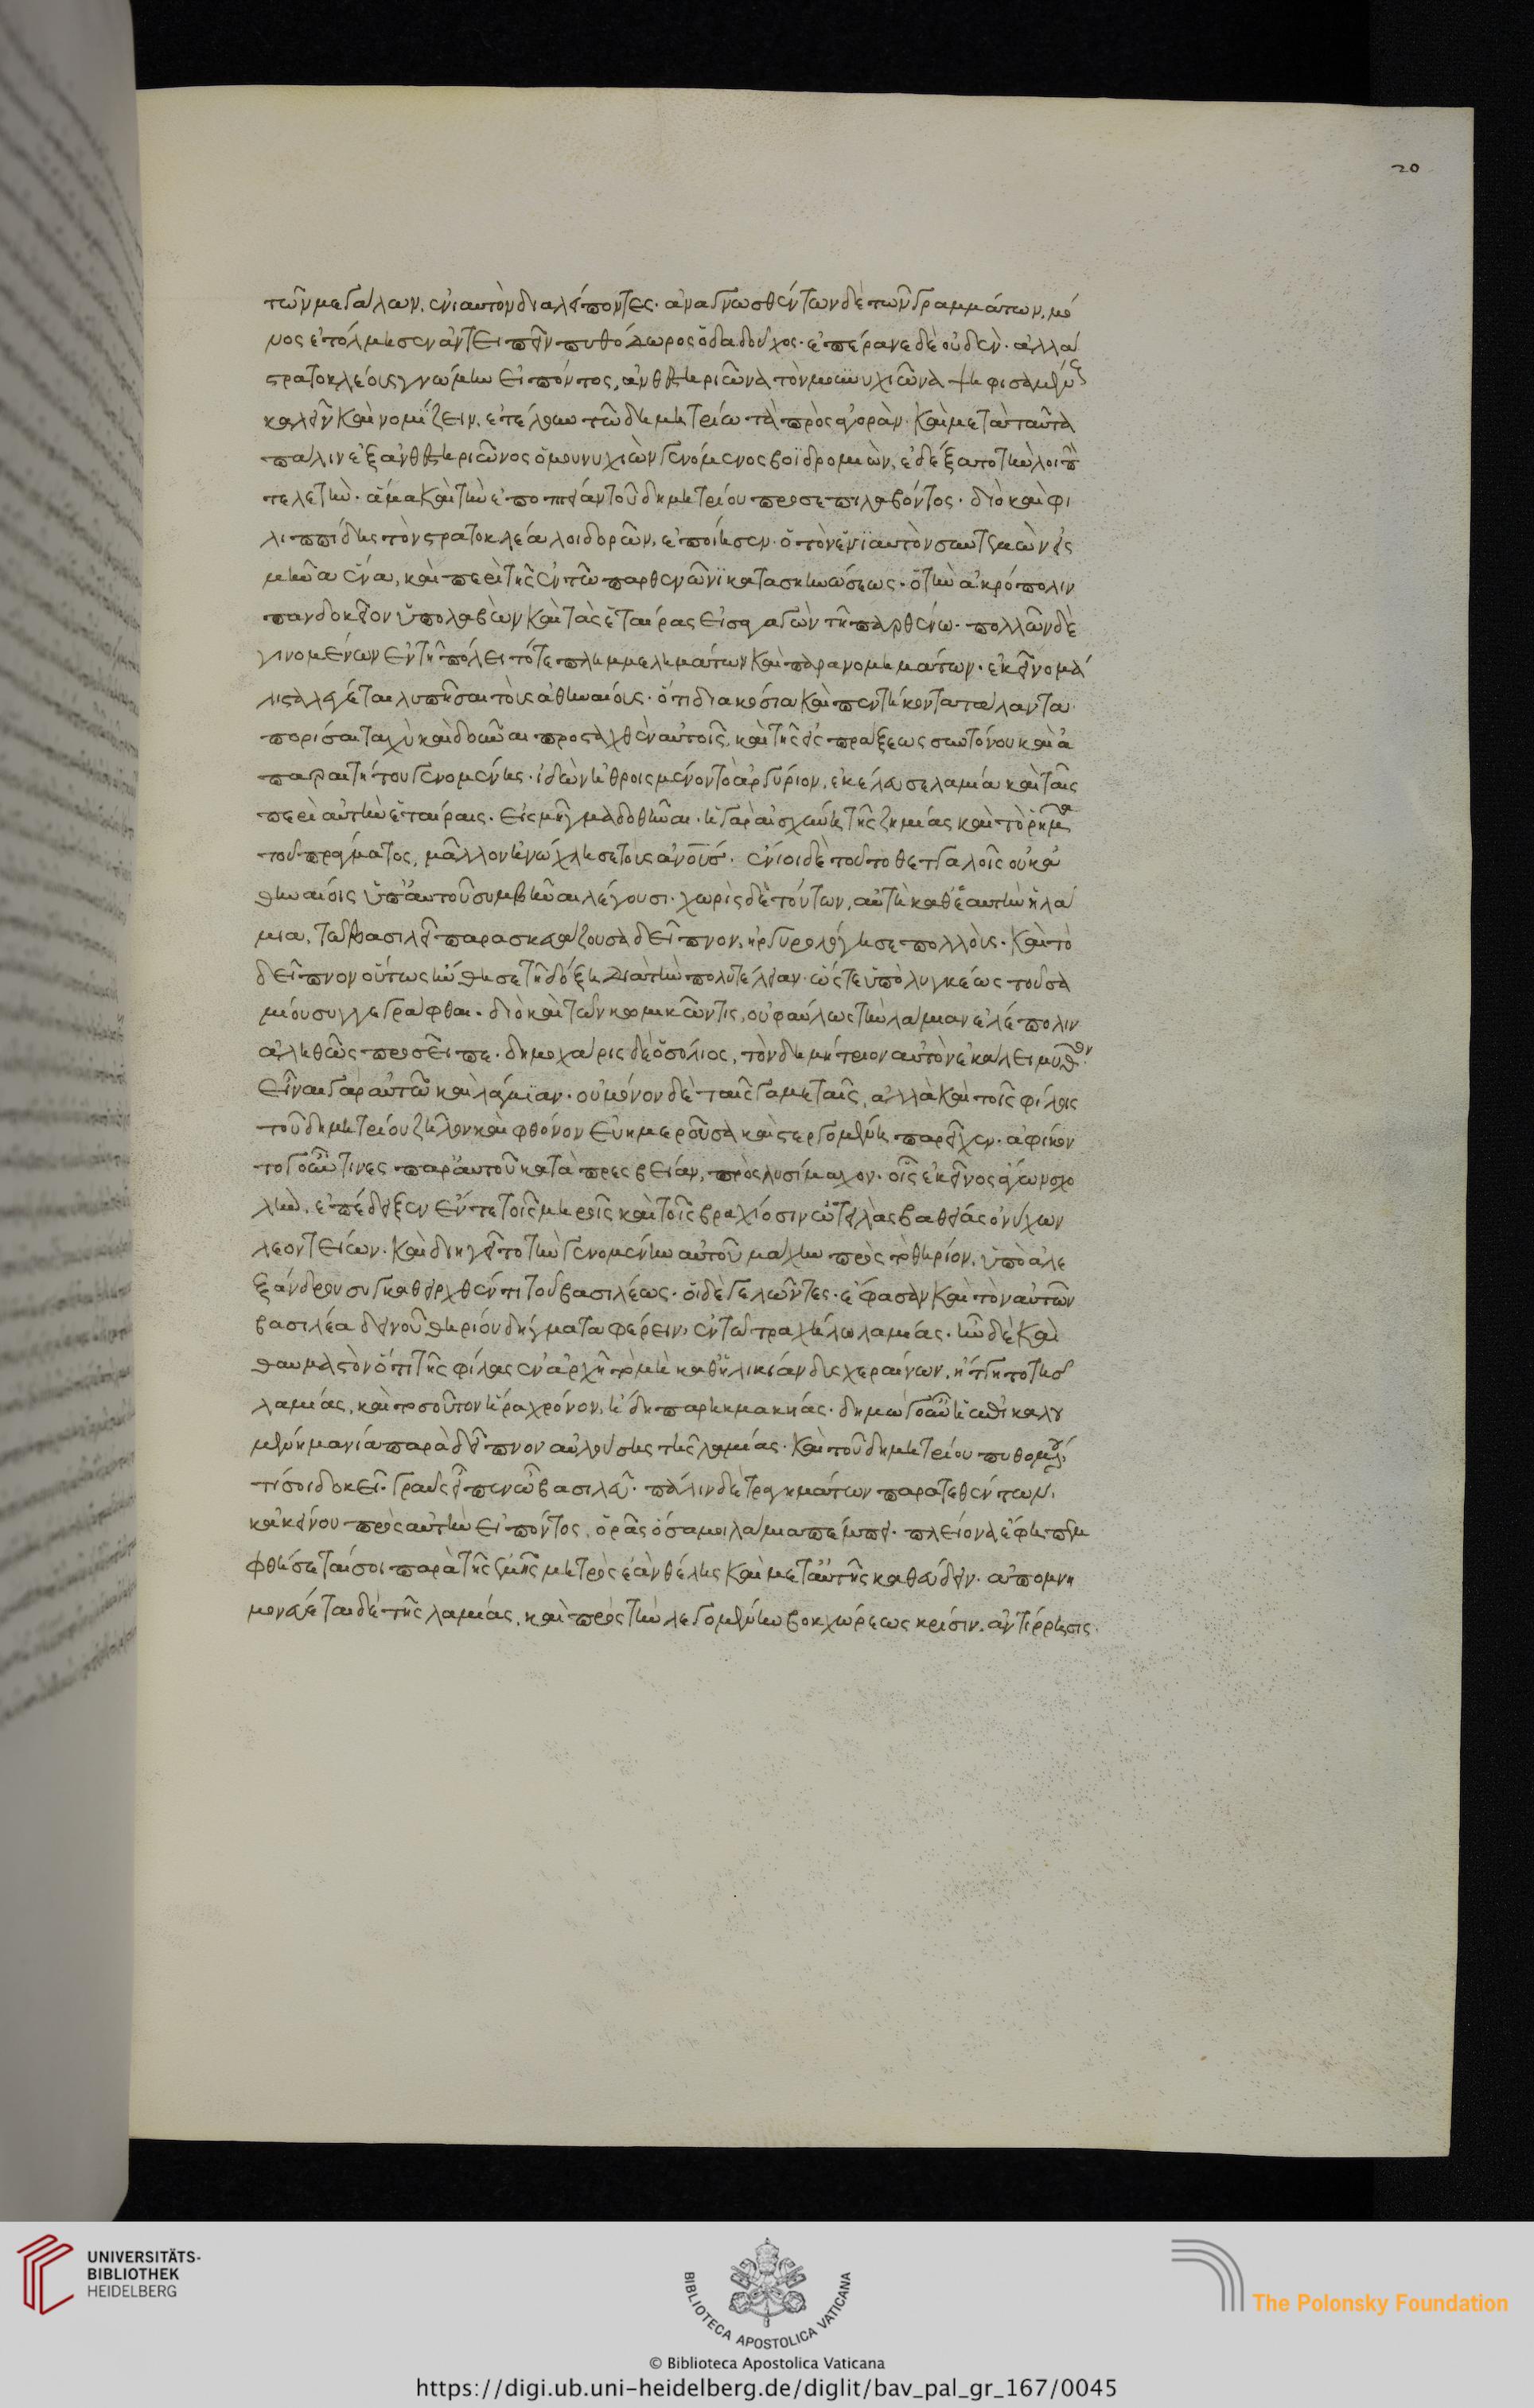 20
τῶν μεγάλων, ἐνιαυτὸν διαλείποντες· ἀναγνωσθέντων δὲ τῶν γραμμάτων, μό
νος ἐτόλμησεν ἀντειπεῖν πυθόδωρος ὁ δαδοῦχος· ἐπέρανε δὲ οὐδέν· ἀλλὰ
στρατοκλέους γνώμην εἰπόντος, ἀνθεστηριῶνα τὸν μουνυχιῶνα ψηφισαμένους
καλεῖν καὶ νομίζειν, ἐτέλουν τῶ δημητρίω τὰ πρὸς ἀγορὰν· καὶ μετὰ ταῦτα
πάλιν ἐξ ἀνθεστηριῶνος ὁ μουνυχιὼν γενόμενος βοϊδρομιὼν, ἐδέξατο τὴν λοιπὴν
τελετήν· ἅμα καὶ τὴν ἐποπτείαν τοῦ δημητρίου προσεπιλαβόντος· διὸ καὶ φι
λιππίδης τὸν στρατοκλέα λοιδορῶν, ἐποίησεν· ὁ τὸν ἐνϊαυτὸν συντεμὼν εἰς
μῆνα ἕνα, καὶ περὶ τῆς ἐν τῶ παρθενῶνϊ κατασκηνώσεως· ὁ τὴν ἀκρόπολιν
πανδοκεῖον ὑπολαβὼν καὶ τὰς ἑταίρας εἰσαγαγὼν τῆ παρθένω· πολλῶν δὲ
γινομένων ἐν τῆ πόλει τότε πλημμελημάτων καὶ παρανομημάτων· ἐκεῖνο μά
λιστα λέγεται λυπῆσαι τοὺς ἀθηναίους· ὅτι διακόσια καὶ πεντήκοντα τάλαντα
πορίσαι ταχὺ καὶ δοῦναι προσταχθὲν αὐτοῖς, καὶ τῆς εἰσπράξεως συντόνου καὶ ἀ
παραιτήτου γενομένης· ἰδὼν ἠθροισμένον τὸ ἀργύριον, ἐκέλευσε λαμία καὶ ταῖς
περὶ αὐτὴν ἑταίραις· εἰς σμῆγμα δοθῆναι· ἡ γὰρ αἰσχύνη τῆς ζημίας καὶ τὸ ῥῆμα
τοῦ πράγματος, μᾶλλον ἠνώχλησε τοὺς ἀνους· ἔνιοι δὲ τοῦτο θετταλοῖς οὐκ ἀ
θηναίοις ὑπ' αὐτοῦ συμβῆναι λέγουσι· χωρὶς δὲ τούτων, αὐτὴ καθ' ἑαυτὴν ἡ λά
μια, τῶ βασιλεῖ παρασκευάζουσα δεῖπνον, ἠργυρολόγησε πολλούς· καὶ τὸ
δεῖπνον οὕτως ἤνθησε τῆ δόξη διὰ τὴν πολυτέλειαν· ὥστε ὑπὸ λυγκέως τοῦ σα
μίου συγγεγράφθαι· διὸ καὶ τῶν κωμικῶν τις, οὐ φαύλως τὴν λάμιαν ἑλέπολιν
ἀληθῶς προσεῖπε· δημοχάρις δὲ ὁ σόλιος, τὸν δημήτριον αὐτὸν ἐκάλει μῦθον·
εἶναι γὰρ αὐτῶ καὶ λάμϊαν· οὐ μόνον δὲ ταῖς γαμεταῖς, ἀλλὰ καὶ τοῖς φίλοις
τοῦ δημητρίου ζῆλον καὶ φθόνον εὐημεροῦσα καὶ στεργομένη παρεῖχεν· ἀφίκον
το γοῦν τινες παρ' αὐτοῦ κατὰ πρεσβείαν, πρὸς λυσίμαχον· οἷς ἐκεῖνος ἄγων σχο
λὴν, ἐπέδειξεν ἔν τε τοῖς μηροῖς καὶ τοῖς βραχίοσιν ὠτειλὰς βαθείας ὀνύχων
λεοντείων· καὶ διηγεῖτο τὴν γενομένην αὐτοῦ μάχην πρὸς τὸ θηρίον, ὑπὸ ἀλε
ξάνδρου συγκαθειρχθέντι τοῦ βασιλέως· οἱ δὲ γελῶντες· ἔφασαν καὶ τὸν αὐτῶν
βασιλέα δεινοῦ θηρίου δήγματα φέρειν, ἐν τῶ τραχήλω λαμίας· ἦν δὲ καὶ
θαυμαστὸν ὅτι τῆς φίλας ἐν ἀρχῆ τὸ μὴ καθ' ἡλικίαν δυσχεραίνων, ἥττητο τῆς
λαμίας, καὶ τοσοῦτον ἤρα χρόνον, ἤδη παρηκμακυίας· δημὼ γοῦν ἡ ἐπικαλου
μένη μανία παρὰ δεῖπνον αὐλούσης τῆς λαμίας· καὶ τοῦ δημητρίου πυθομένου
τί σοι δοκεῖ· γραῦς εἶπεν ὦ βασιλεῦ· πάλιν δὲ τραγημάτων παρατεθέντων,
κἀκείνου πρὸς αὐτὴν εἰπόντος, ὁρᾶς ὅσα μοι λάμια πέμπει· πλείονα ἔφη πεμ
φθήσεταί σοι παρὰ τῆς ἐμῆς μητρὸς ἐὰν θέλης καὶ μετ' αὐτῆς καθεύδειν· ἀπομνη
μονεύεται δὲ τῆς λαμίας, καὶ πρὸς τὴν λεγομένην βοκχώρεως κρίσιν, ἀντίρρησις·
UNIVERSITÄTS-
BIBLIOTHEK
HEIDELBERG
BIBLIOTECA APOSTOLICA VATICANA
The Polonsky Foundation
© Biblioteca Apostolica Vaticana
https://digi.ub.uni-heidelberg.de/diglit/bav_pal_gr_167/0045